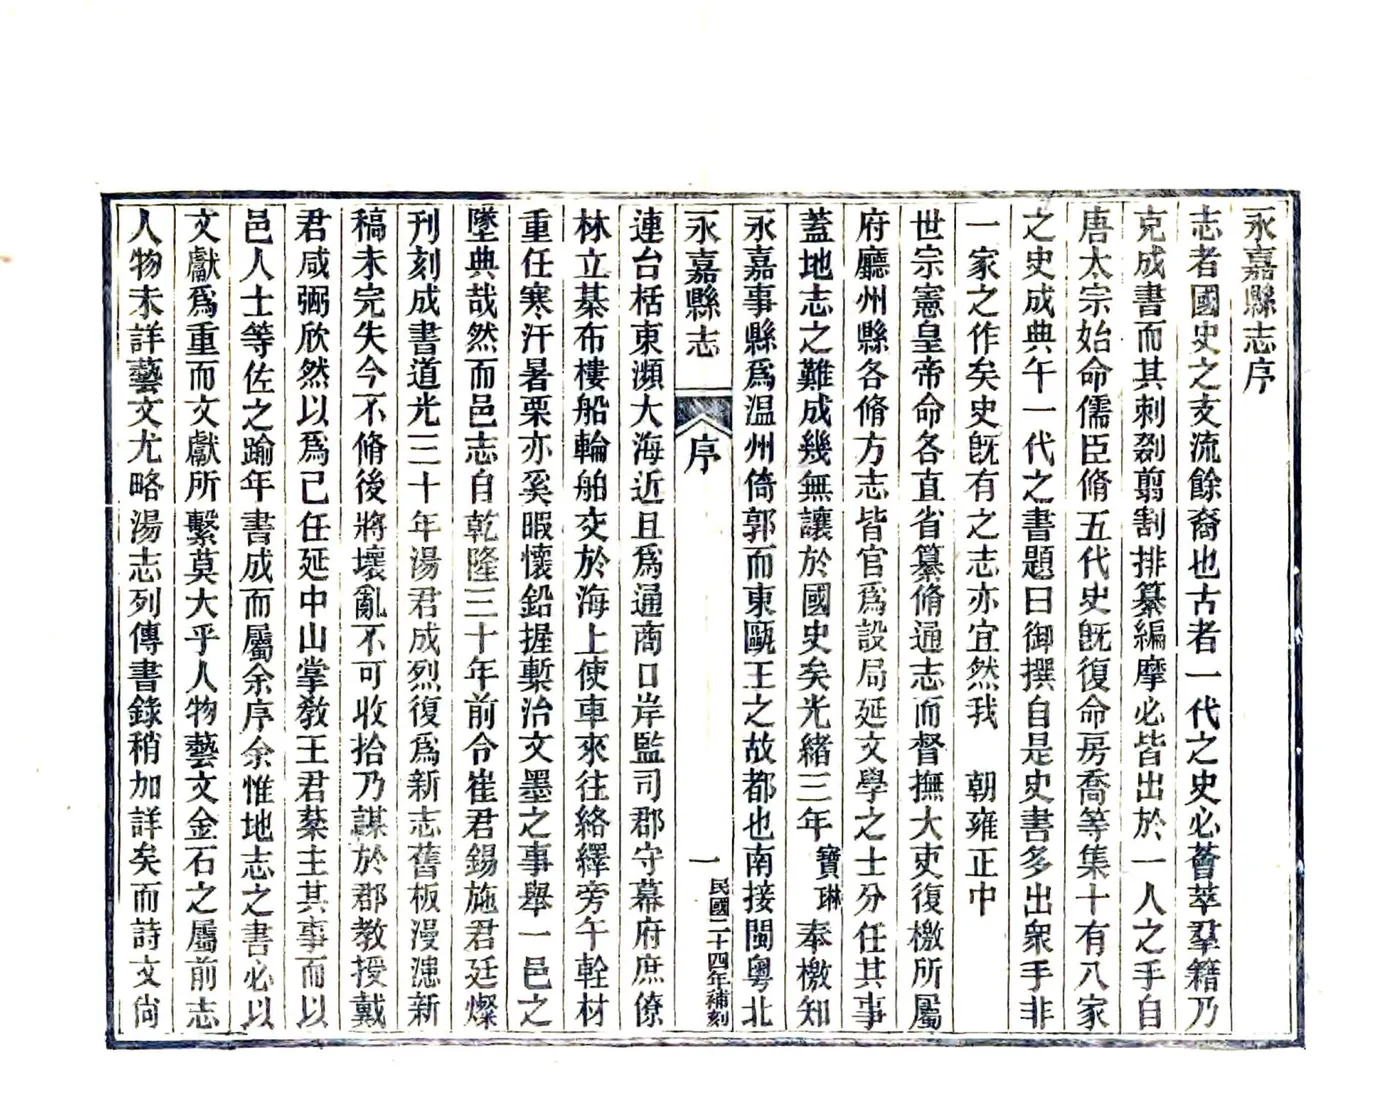 永嘉縣志序
志者國史之支流餘裔也古者一代之史必薈萃羣籍乃
克成書而其刺剟翦割排纂編摩必皆出於一人之手自
唐太宗始命儒臣脩五代史旣復命房喬等集十有八家
之史成典午一代之書題曰御撰自是史書多出衆手非
一家之作矣史旣有之志亦宜然我　朝雍正中
世宗憲皇帝命各直省纂脩通志而督撫大吏復檄所屬
府廳州縣各脩方志皆官爲設局延文學之士分任其事
蓋地志之難成幾無讓於國史矣光緒三年寶琳奉檄知
永嘉事縣爲温州倚郭而東甌王之故都也南接閩粤北
永嘉縣志
序
一
民國二十四年補刻
連台栝東瀕大海近且爲通商口岸監司郡守幕府庶僚
林立棊布樓船輪舶交於海上使車來往絡繹旁午輇材
重任寒汗暑栗亦奚暇懷鉛握槧治文墨之事舉一邑之
墜典哉然而邑志自乾隆三十年前令崔君錫施君廷燦
刊刻成書道光三十年湯君成烈復爲新志舊板漫漶新
稿未完失今不脩後將壞亂不可收拾乃謀於郡教授戴
君咸弼欣然以爲己任延中山掌教王君棻主其事而以
邑人士等佐之踰年書成而屬余序余惟地志之書必以
文獻爲重而文獻所繫莫大乎人物藝文金石之屬前志
人物未詳藝文尤略湯志列傳書錄稍加詳矣而詩文尙